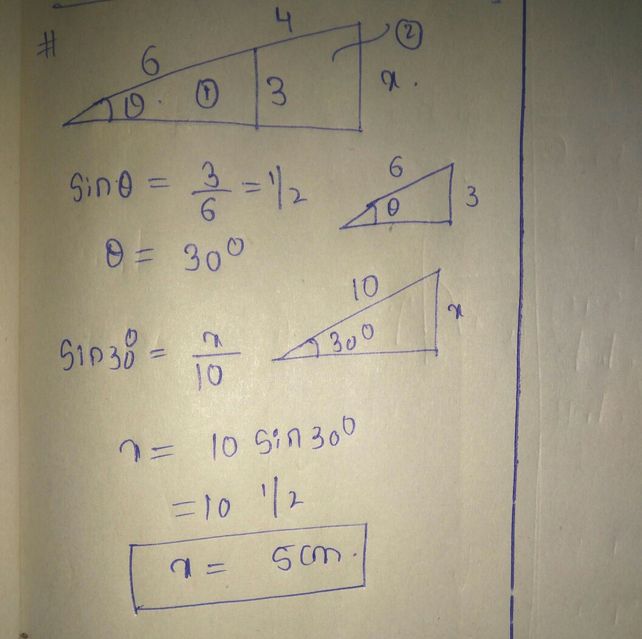 #
4
②
6
θ
①
3
x.
sinθ = 3/6 = 1/2
6
θ
3
θ = 30⁰
10
30⁰
x
sin30⁰ = x/10
x = 10 sin30⁰
= 10 1/2
x = 5cm.